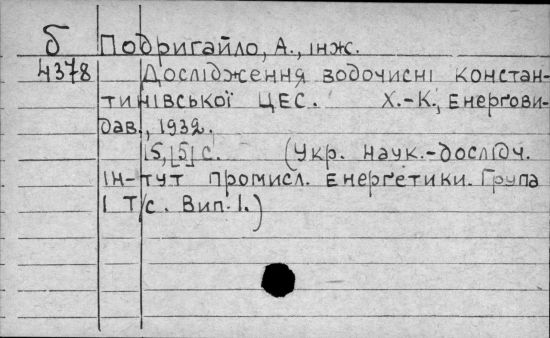 б Подригайло, А., інж.
4378 Дослідження водочисні констан-
тинівської ЦЕС. Х.-К., Енергови-
дав., 1932.
15, [5] с. (Укр. наук.-дослідч.
ін-тут промисл. енерґетики. Група
І Т/с. Вип. 1.)